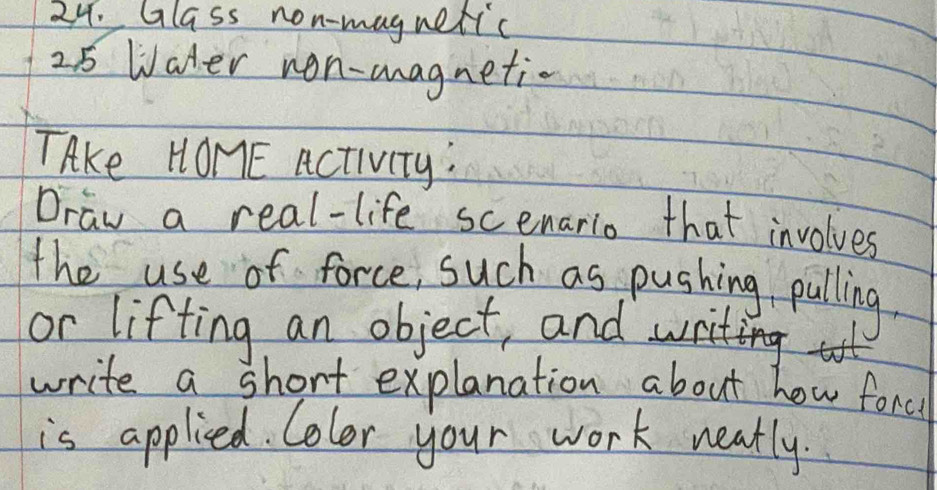 24. Glass non-magnetic
25 Water non-magnetic
TAKe HOME ACTIVITY:
Draw a real-life scenario that involves
the use of force, such as pushing, pulling,
or lifting an object, and writing wt
write a short explanation about how force
is applied. Color your work neatly.